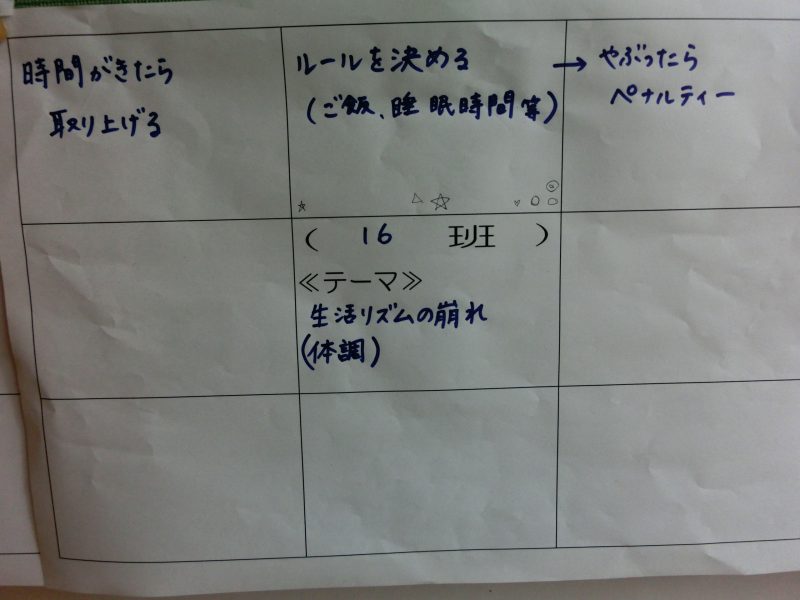 時間がきたら
取り上げる
ルールを決める
(ご飯、睡眠時間等)
→ やぶったら
ペナルティー
( 16 班 )
≪テーマ≫
生活リズムの崩れ
(体調)